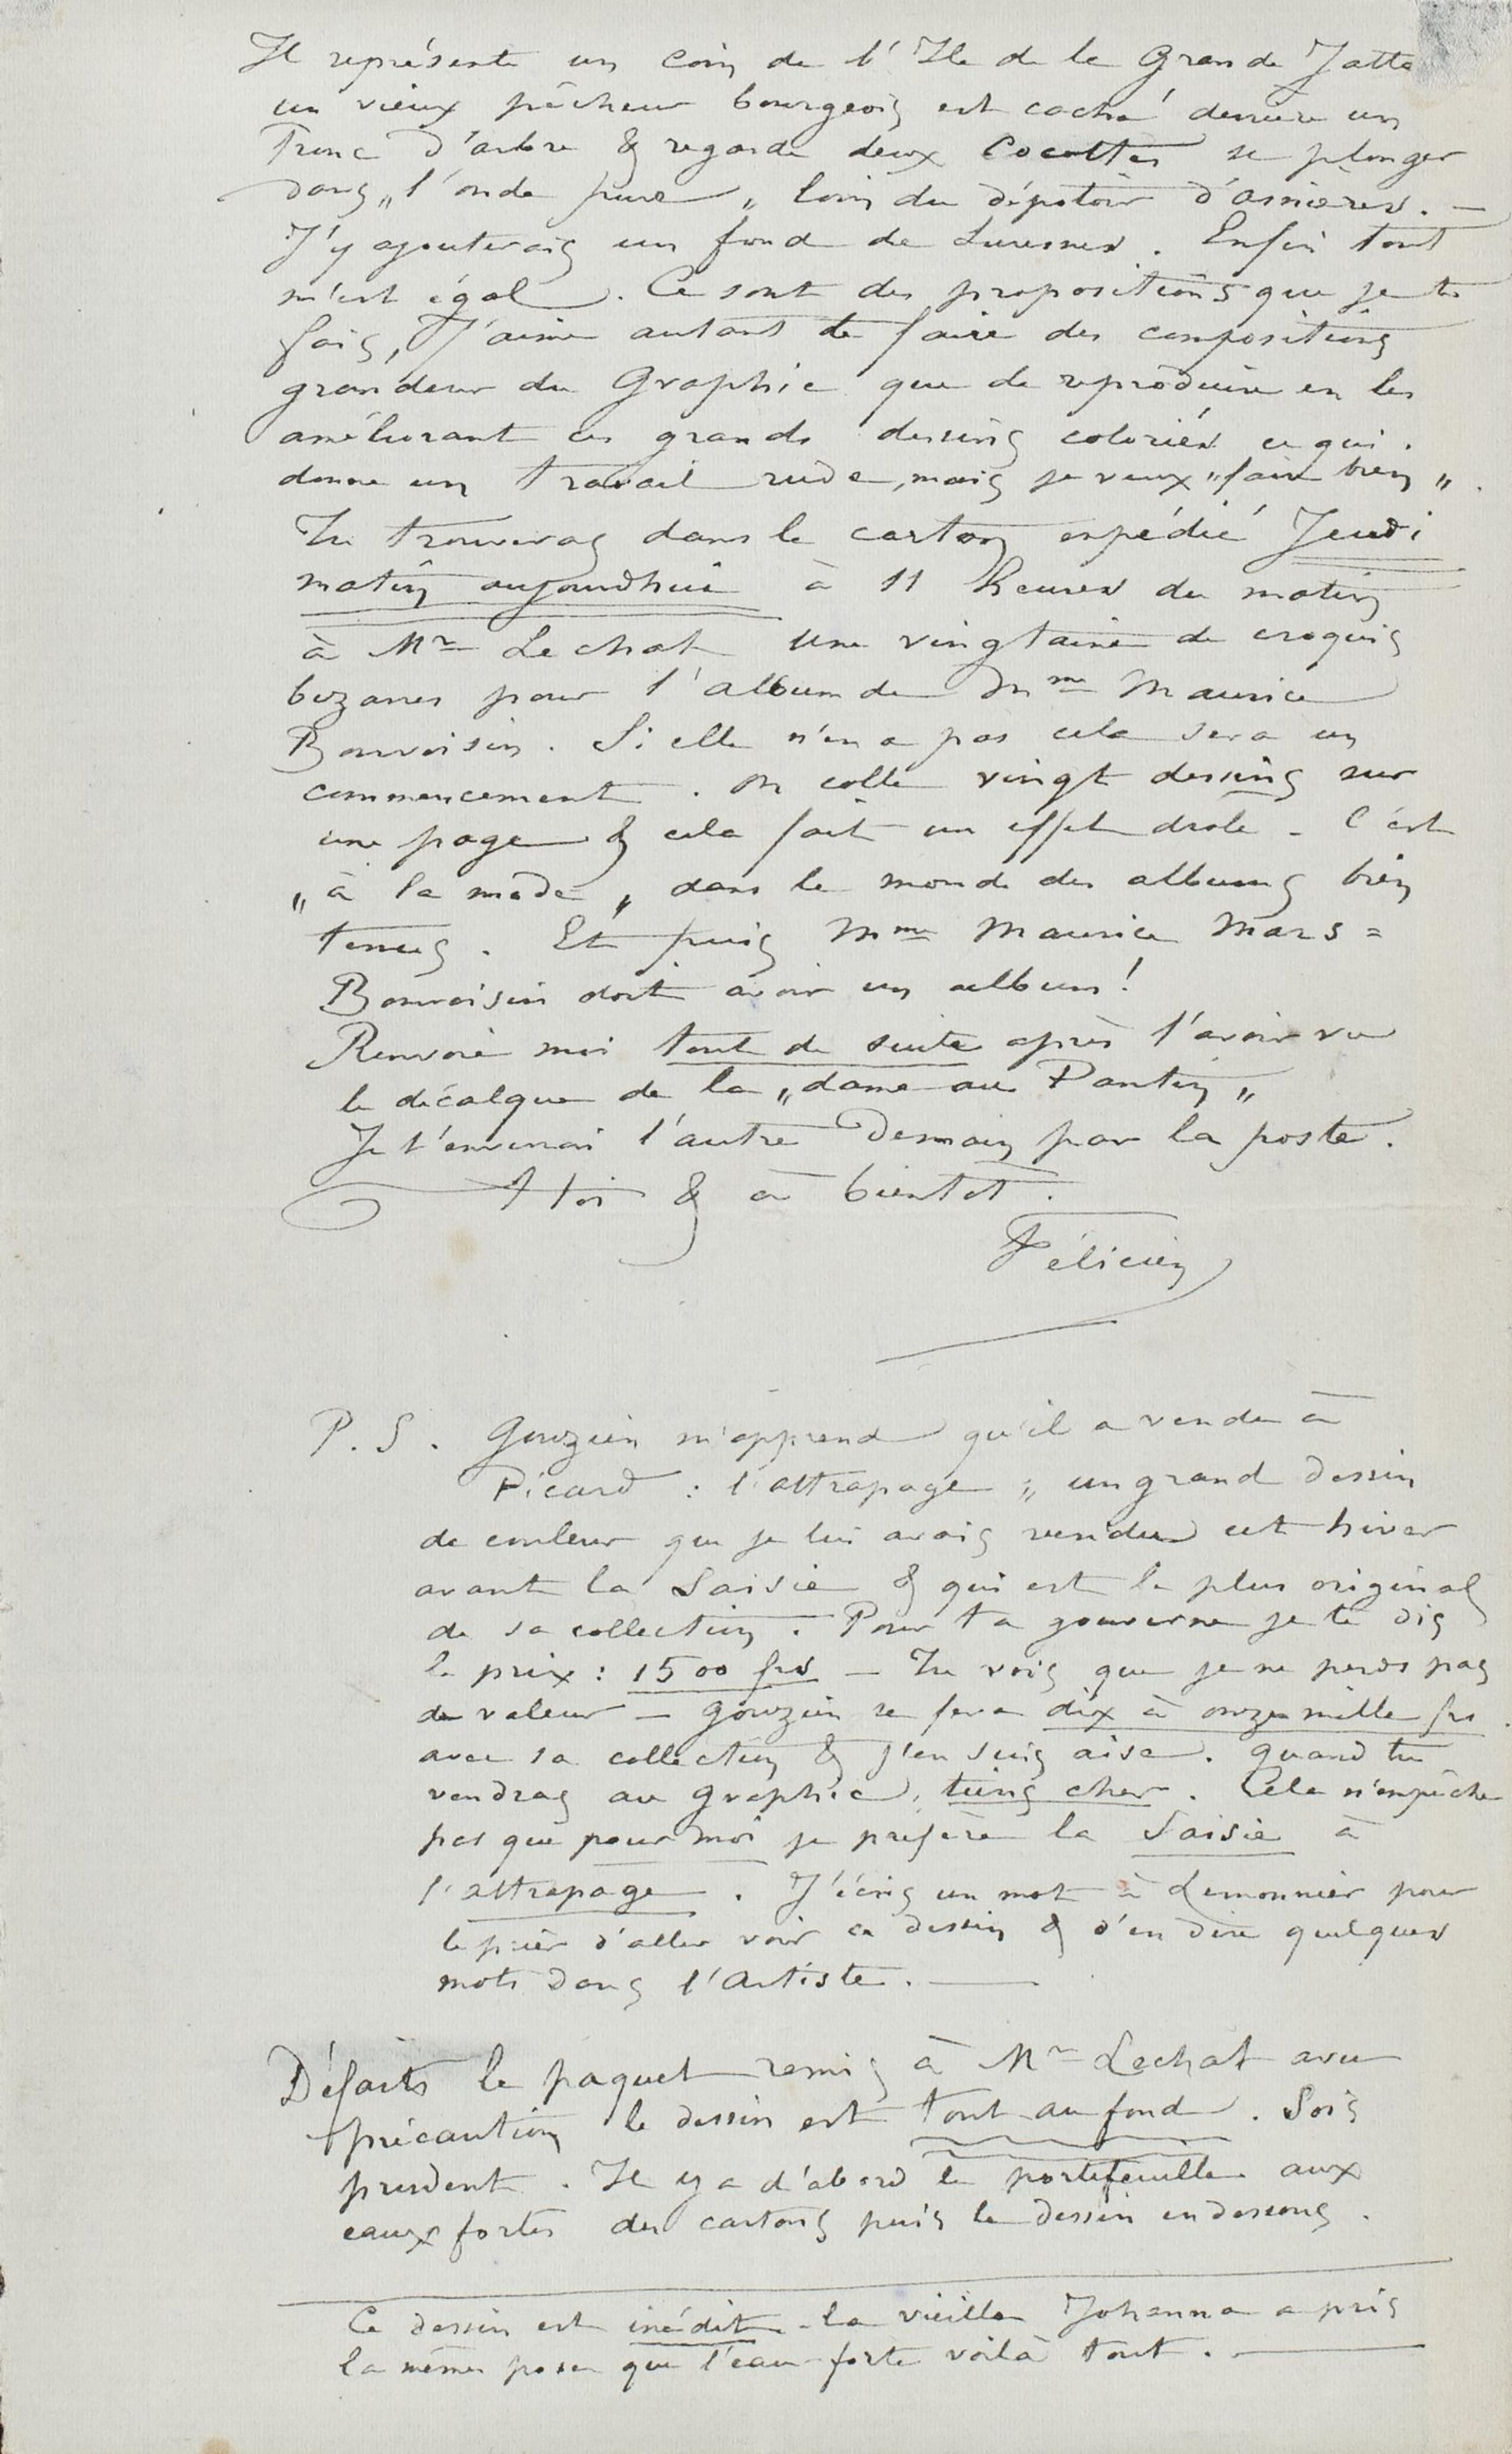 Il représente un coin de l'Ile de la Grande Jatte
un vieux pêcheur bourgeois est caché derrière un
Tronc d'arbre & regarde deux Cocottes se plonger
dans „l'onde pure„ loin du dépotoir d'asnières. —
J'y ajouterais un fond de Suresnes. Enfin tout
m'est égal. Ce sont des propositions que je te
fais, J'aime autant te faire des compositions
grandeur du Graphic que de reproduire en les
améliorant ces grands dessins coloriés ce qui
donne un travail rude, mais je veux „faire bien„.
Tu trouveras dans le carton expédié Jeudi
matin aujourdhui à 11 heures du matin
à Mr Lechat une vingtaine de croquis
bizarres pour l'album de Mme Maurice
Bonvoisin. Si elle n'en a pas cela sera un
commencement. On colle vingt dessins sur
une page & cela fait un effet drole - C'est
„à la mode„ dans le monde des albums bien
tenus. Et puis Mme Maurice Mars=
Bonvoisin doit avoir un album!
Renvoie moi tout de suite après l'avoir vu
le décalque de la „dame au Pantin„
Je t'enverrai l'autre Demain par la poste.
A toi & à bientot.
Félicien
P.S. Gouzien m'apprend qu'il a vendu à
Picard : l'attrapage „ un grand dessin
de couleur que je lui avais vendu cet hiver
avant la Saisie & qui est le plus original
de sa collection. Pour ta gouverne je te dis
le prix : 1500 frs — Tu vois que je ne perds pas
de valeur — Gouzien se fera dix à onze mille frs.
avec sa collection & j'en suis aise. Quand tu
vendras au Graphic, tiens cher. Cela n'empêche
pas que pour moi je prefère la Saisie à
l'attrapage. J'écris un mot à Lemonnier pour
le prier d'aller voir ce dessin & d'en dire quelques
mots dans l'Artiste. —
Défaits le paquet remis à Mr Lechat avec
précaution le dessin est tout au fond. Sois
prudent. Il y a d'abord le portefeuille aux
eaux fortes des cartons puis le dessin en dessous.
Ce dessin est inédit - la vieille Johanna a pris
la même pose que l'eau-forte voilà tout. —